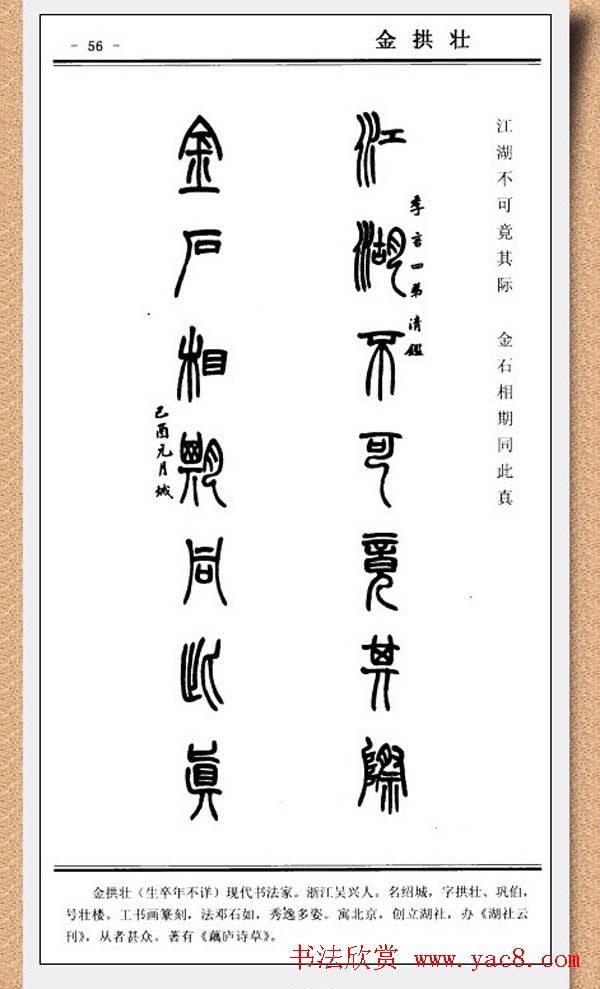 - 56 -
金拱壮
江湖不可竟其际 金石相期同此真
江湖不可竟其際
季言四弟清鑑
金石相期同此真
己酉元月城
金拱壮（生卒年不详）现代书法家。浙江吴兴人。名绍城，字拱壮、巩伯，
号壮楼。工书画篆刻，法邓石如，秀逸多姿。寓北京，创立湖社，办《湖社云
刊》，从者甚众。著有《藕庐诗草》。
书法欣赏 www.yac8.com